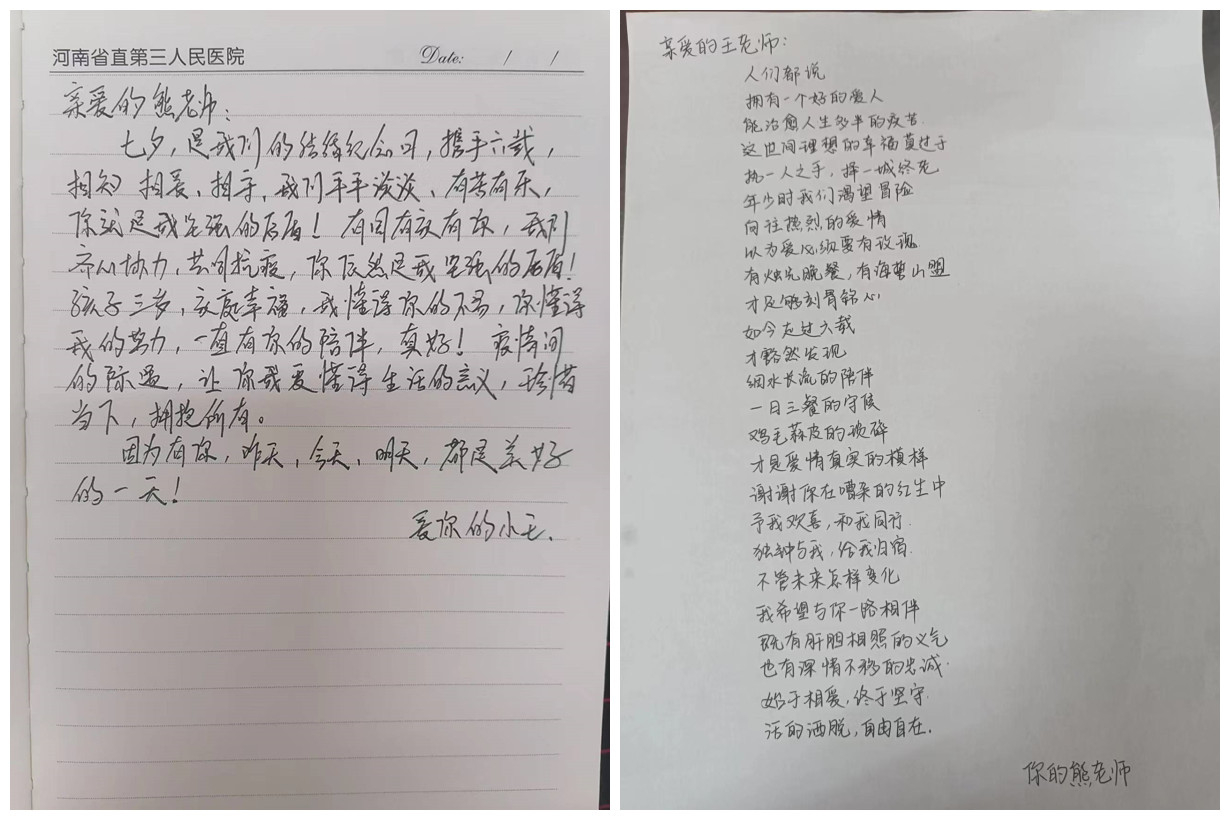 河南省直第三人民医院 Date: / /
亲爱的熊老师：
七夕，是我们的结缘纪念日，携手六载，
相知、相爱、相守，我们平平淡淡、有苦有乐，
你就是我坚强的后盾！有日有夜有你，我们
齐心协力，共同抗疫，你依然是我坚强的后盾！
孩子三岁，家庭幸福，我懂得你的不易，你懂得
我的努力，一直有你的陪伴，真好！疫情间
的际遇，让你我更懂得生活的意义，珍惜
当下，拥抱所有。
因为有你，昨天，今天，明天，都是美好
的一天！
爱你的小王.
亲爱的王老师：
人们都说
拥有一个好的爱人
能治愈人生多半的疾苦
这世间理想的幸福莫过于
执一人之手，择一城终老
年少时我们渴望冒险
向往热烈的爱情
以为爱必须要有玫瑰
有烛光晚餐，有海誓山盟
才足够刻骨铭心
如今走过六载
才豁然发现
细水长流的陪伴
一日三餐的守候
鸡毛蒜皮的琐碎
才是爱情真实的模样
谢谢你在嘈杂的红尘中
予我欢喜，和我同行.
独钟与我，给我归宿.
不管未来怎样变化
我希望与你一路相伴
既有肝胆相照的义气
也有深情不移的忠诚.
始于相爱，终于坚守.
活的洒脱，自由自在.
你的熊老师